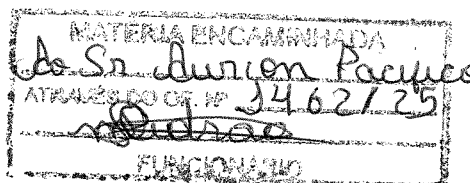 MATÉRIA ENCAMINHADA
Ao Sr Aurion Pacifico
ATRAVÉS DO OF. Nº 1462/25
FUNCIONÁRIO